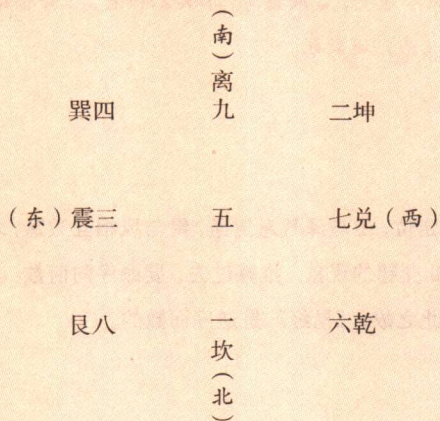 （南）离
巽四 九 二坤
（东）震三 五 七兑（西）
艮八 一 六乾
坎（北）